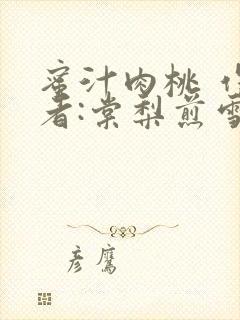 蜜汁肉桃 作
者:棠梨煎雪
彦鹰